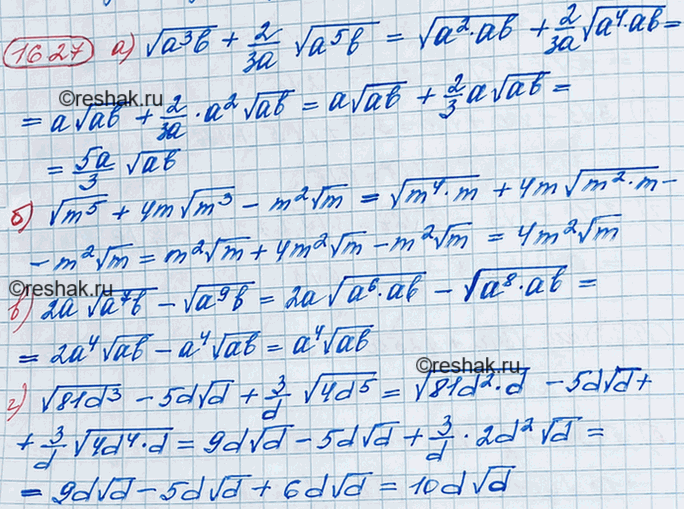 1627 а) √(a³b) + 2/(3a) √(a⁵b) = √(a²·ab) + 2/(3a) √(a⁴·ab) =
©reshak.ru
= a√(ab) + 2/(3a) · a² √(ab) = a√(ab) + 2/3 a√(ab) =
= 5a/3 √(ab)
б) √(m⁵) + 4m√(m³) - m²√m = √(m⁴·m) + 4m√(m²·m) -
- m²√m = m²√m + 4m²√m - m²√m = 4m²√m
©reshak.ru
в) 2a√(a⁷b) - √(a⁹b) = 2a√(a⁶·ab) - √(a⁸·ab) =
= 2a⁴√(ab) - a⁴√(ab) = a⁴√(ab)
©reshak.ru
г) √(81d³) - 5d√d + 3/d √(4d⁵) = √(81d²·d) - 5d√d +
+ 3/d √(4d⁴·d) = 9d√d - 5d√d + 3/d · 2d²√d =
= 9d√d - 5d√d + 6d√d = 10d√d